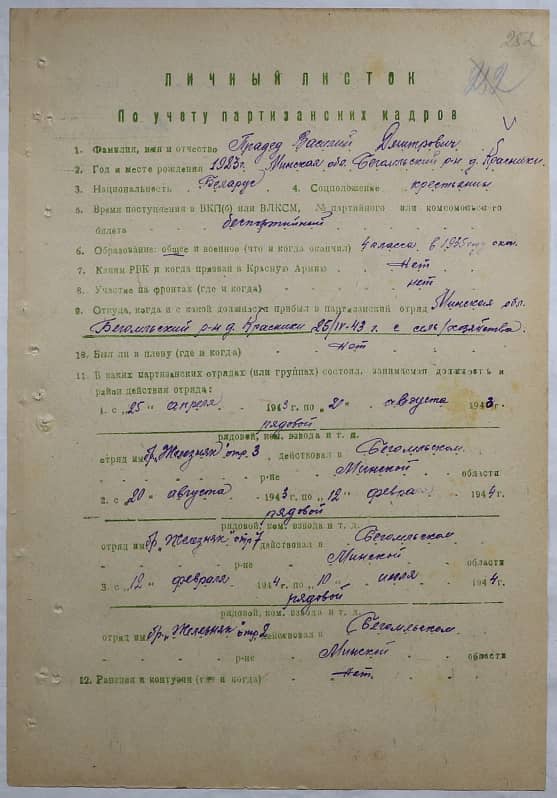 252
242
ЛИЧНЫЙ ЛИСТОК
По учету партизанских кадров
1. Фамилия, имя и отчество Прадед Василий Дмитрович.
2. Год и место рождения 1923г. Минская обл. Бегомльский р-н д. Красники.
3. Национальность Беларус 4. Соцположение крестьянин
5. Время поступления в ВКП(б) или ВЛКСМ, № партийного или комсомольского
билета беспортийный
6. Образование: общее и военное (что и когда окончил) 4 класса в 1935 году окон.
7. Каким РВК и когда призван в Красную Армию Нет
8. Участие на фронтах (где и когда) нет
9. Откуда, когда и с какой должности прибыл в партизанский отряд Минская обл.
Бегомльский р-н д. Красники 25/IV-43 г. с сель/хозяйства.
10. Был ли в плену (где и когда) нет
11. В каких партизанских отрядах (или группах) состоял, занимаемая должность и
район действия отряда:
1. с „25" апреля 1943 г. по „20" августа 1943г.
рядовой
рядовой, ком. взвода и т. д.
отряд им. бр. „Железняк" отр. 3 действовал в Бегомльском
р-не Минской области
2. с „20" августа 1943 г. по „12" февра 1944г.
рядовой
рядовой, ком. взвода и т. д.
отряд им. бр. „Железняк" отр 7 действовал в Бегомльском
р-не Минской области
3. с „12" февраля 1944 г. по „10" июля 1944г.
рядовой
рядовой, ком. взвода и т. д.
отряд им. бр. „Железняк" отр. 2 действовал в Бегомльском
р-не Минской области
12. Ранения и контузии (где и когда) нет.